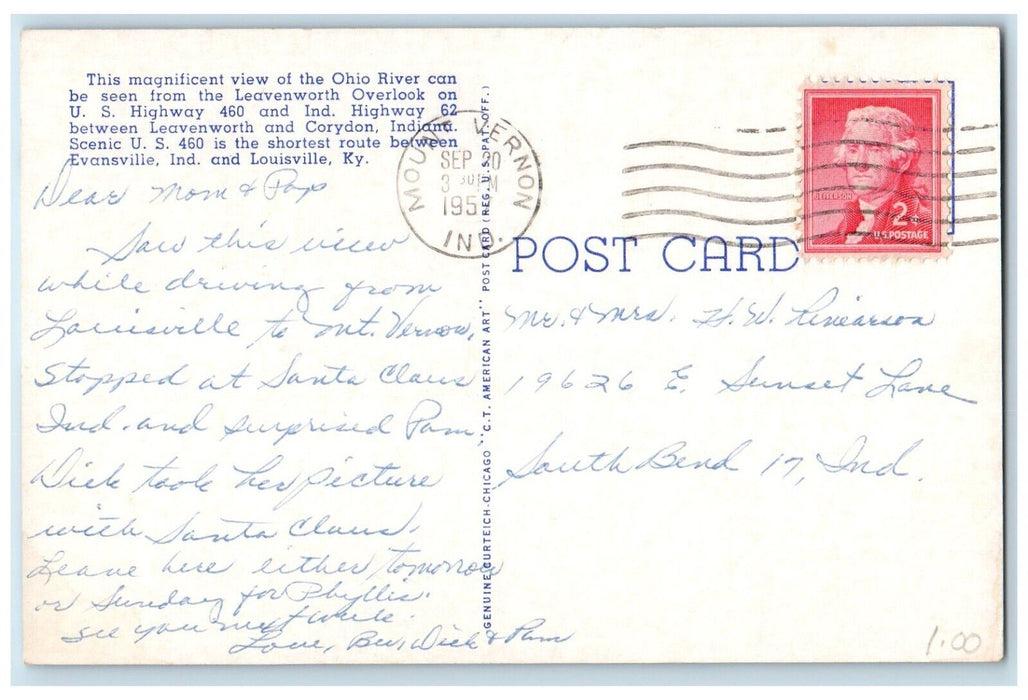 This magnificent view of the Ohio River can
be seen from the Leavenworth Overlook on
U. S. Highway 460 and Ind. Highway 62
between Leavenworth and Corydon, Indiana.
Scenic U. S. 460 is the shortest route between
Evansville, Ind. and Louisville, Ky.
Dear Mom & Pop
Saw this view
while driving from
Louisville to Mt. Vernon,
Stopped at Santa Claus
Ind. and surprised Pam.
Dick took her picture
with Santa Claus.
Leave here either tomorrow
or Sunday for Phyllis.
See you next week.
Love, Bev, Dick & Pam
GENUINE CURTEICH-CHICAGO "C.T. AMERICAN ART" POST CARD (REG. U.S. PAT. OFF.)
MOUNT VERNON
SEP 20
3 30 PM
195
IND.
JEFFERSON
2¢
U.S. POSTAGE
POST CARD
Mr. & Mrs. H. W.
19626 E. Sunset Lane
South Bend 17, Ind.
1.00